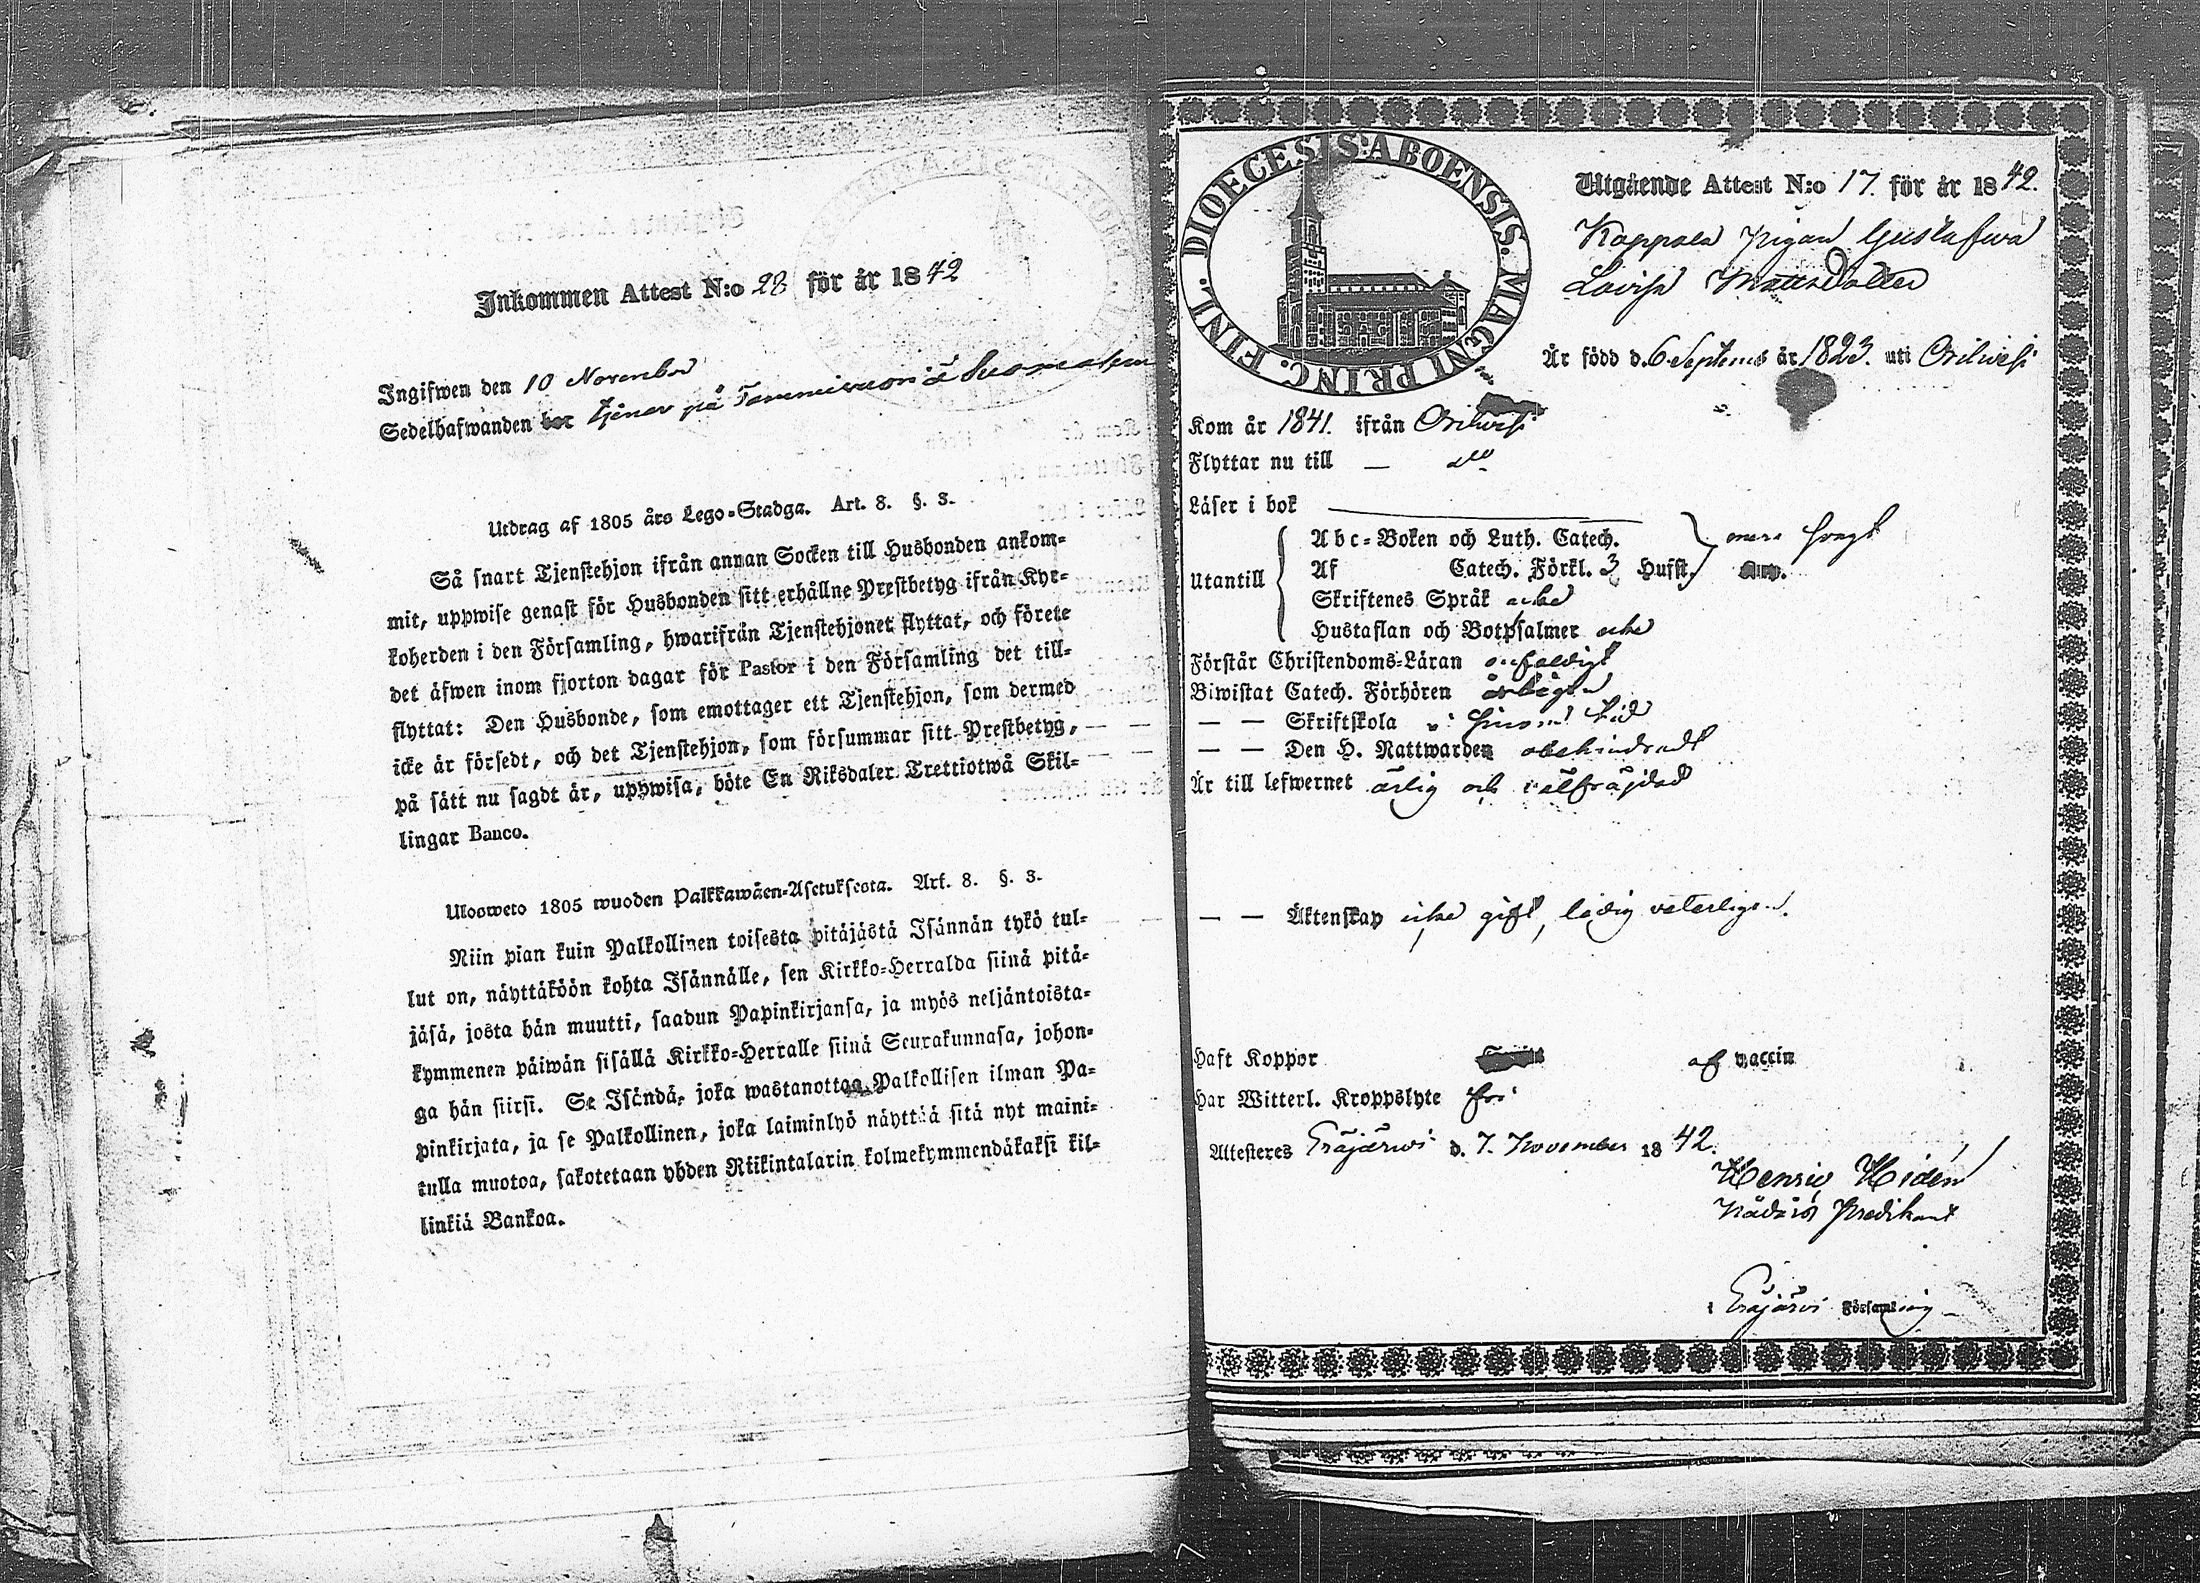 Inkommen Attest N:o 28 för år 1842
Ingifwen den 10 November
Sedelhafwanden bor tjenar på
Utdrag af 1805 års Lego-Stadga. Art. 8. §. 3.
Så snart Tjenstehjon ifrån annan Socken till Husbonden ankom-
mit, uppwise genast för Husbonden sitt erhållne Prestbetyg ifrån Kyr-
koherden i den Församling, hwarifrån Tjenstehjonet flyttat, och förete
det äfwen inom fjorton dagar för Pastor i den Församling det till-
flyttat: Den Husbonde, som emottager ett Tjenstehjon, som dermed
icke är försedt, och det Tjenstehjon, som försummar sitt Prestbetyg,
på sätt nu sagdt är, uppwisa, böte En Riksdaler Trettiotwå Skil-
lingar Banco.
Ulosweto 1805 wuoden Palkkawäen-Asetuksesta. Art. 8. §. 3.
Niin pian kuin Palkollinen toisesta pitäjästä Isännän tykö tul-
lut on, näyttäköön kohta Isännälle, sen Kirkko-Herralda siinä pitä-
jäsä, josta hän muutti, saadun Papinkirjansa, ja myös neljäntoista-
kymmenen päiwän sisällä Kirkko-Herralle siinä Seurakunnasa, johon-
ga hän siirsi. Se Isändä, joka wastanottaa Palkollisen ilman Pa-
pinkirjata, ja se Palkollinen, joka laiminlyö näyttää sitä nyt maini-
tulla muotoa, sakotetaan yhden Riikintalarin kolmekymmendäkaksi kil-
linkiä Bankoa.
DIOECESIS ABOENSIS. MAGNI PRINC. FINL.
Utgående Attest N:o 17. för år 1842.
Koppala Pigan Gustafwa
Lovisa Mattsdotter
Är född d. 6 Septemb är 1823. uti Orihvesi
Kom år 1841. ifrån Orihvesi
Flyttar nu till — do
Läser i bok
Utantill
Abc-Boken och Luth. Catech.
Af Catech. Förkl. 3 Hufst.
Skriftenes Språk icke
Hustaflan och Botpsalmer icke
Förstår Christendoms-Läran enfaldigt
Biwistat Catech. Förhören årligen
— — Skriftskola i sinom tid
— — Den H. Nattwarden obehindradt
Är till lefwernet ärlig och välfräjdad
— — Äktenskap icke gift, ledig veterligen.
Haft Koppor af vaccin
Har Witterl. Kroppslyte fri
Attesteres Eräjärwi d. 7. November 1842.
Henric Hidén
Nådårs Predikant
i Eräjärvi Församling